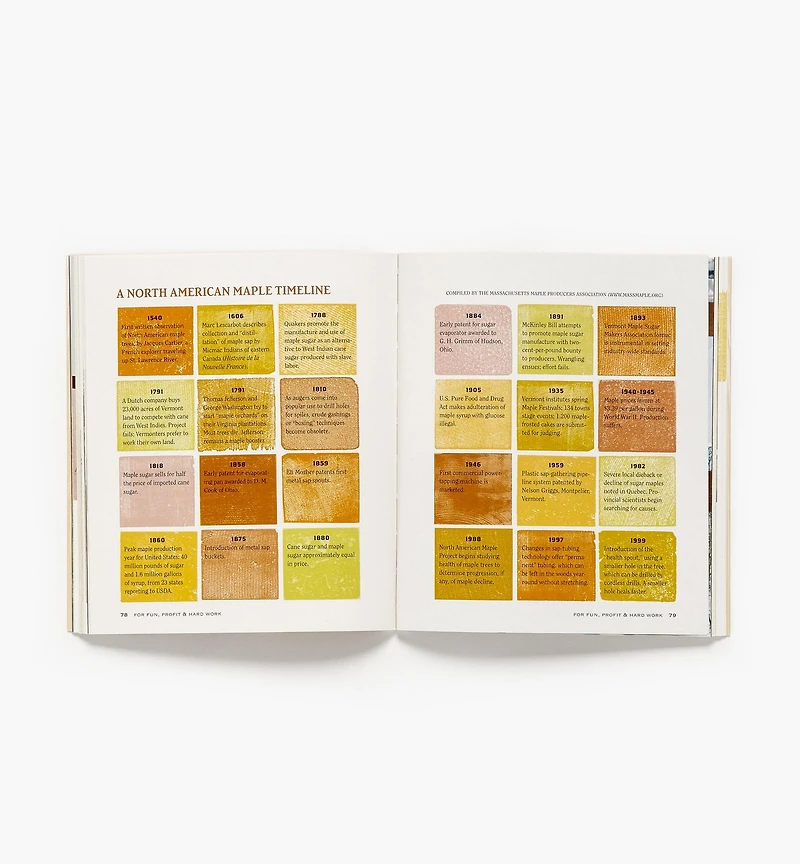 A NORTH AMERICAN MAPLE TIMELINE
1540
First written observation
of North American maple
trees, by Jacques Cartier, a
French explorer traveling
up St. Lawrence River.
1606
Marc Lescarbot describes
collection and "distil-
lation" of maple sap by
Micmac Indians of eastern
Canada (Histoire de la
Nouvelle France).
1788
Quakers promote the
manufacture and use of
maple sugar as an alterna-
tive to West Indian cane
sugar produced with slave
labor.
1791
A Dutch company buys
23,000 acres of Vermont
land to compete with cane
from West Indies. Project
fails; Vermonters prefer to
work their own land.
1791
Thomas Jefferson and
George Washington try to
start "maple orchards" on
their Virginia plantations.
Most trees die. Jefferson
remains a maple booster.
1810
As augers come into
popular use to drill holes
for spiles, crude gashings
or "boxing" techniques
become obsolete.
1818
Maple sugar sells for half
the price of imported cane
sugar.
1858
Early patent for evaporat-
ing pan awarded to D. M.
Cook of Ohio.
1859
Eli Mosher patents first
metal sap spouts.
1860
Peak maple production
year for United States: 40
million pounds of sugar
and 1.6 million gallons
of syrup, from 23 states
reporting to USDA.
1875
Introduction of metal sap
buckets.
1880
Cane sugar and maple
sugar approximately equal
in price.
78 FOR FUN, PROFIT & HARD WORK
COMPILED BY THE MASSACHUSETTS MAPLE PRODUCERS ASSOCIATION (WWW.MASSMAPLE.ORG)
1884
Early patent for sugar
evaporator awarded to
G. H. Grimm of Hudson,
Ohio.
1891
McKinley Bill attempts
to promote maple sugar
manufacture with two-
cent-per-pound bounty
to producers. Wrangling
ensues; effort fails.
1893
Vermont Maple Sugar
Makers Association forms;
is instrumental in setting
industry-wide standards.
1905
U.S. Pure Food and Drug
Act makes adulteration of
maple syrup with glucose
illegal.
1935
Vermont institutes spring
Maple Festivals; 134 towns
stage events; 1,200 maple-
frosted cakes are submit-
ted for judging.
1940-1945
Maple prices freeze at
$3.39 per gallon during
World War II. Production
suffers.
1946
First commercial power-
tapping machine is
marketed.
1959
Plastic sap-gathering pipe-
line system patented by
Nelson Griggs, Montpelier,
Vermont.
1982
Severe local dieback or
decline of sugar maples
noted in Quebec. Pro-
vincial scientists begin
searching for causes.
1988
North American Maple
Project begins studying
health of maple trees to
determine progression, if
any, of maple decline.
1997
Changes in sap-tubing
technology offer "perma-
nent" tubing, which can
be left in the woods year-
round without stretching.
1999
Introduction of the
"health spout," using a
smaller hole in the tree,
which can be drilled by
cordless drills. A smaller
hole heals faster.
FOR FUN, PROFIT & HARD WORK 79